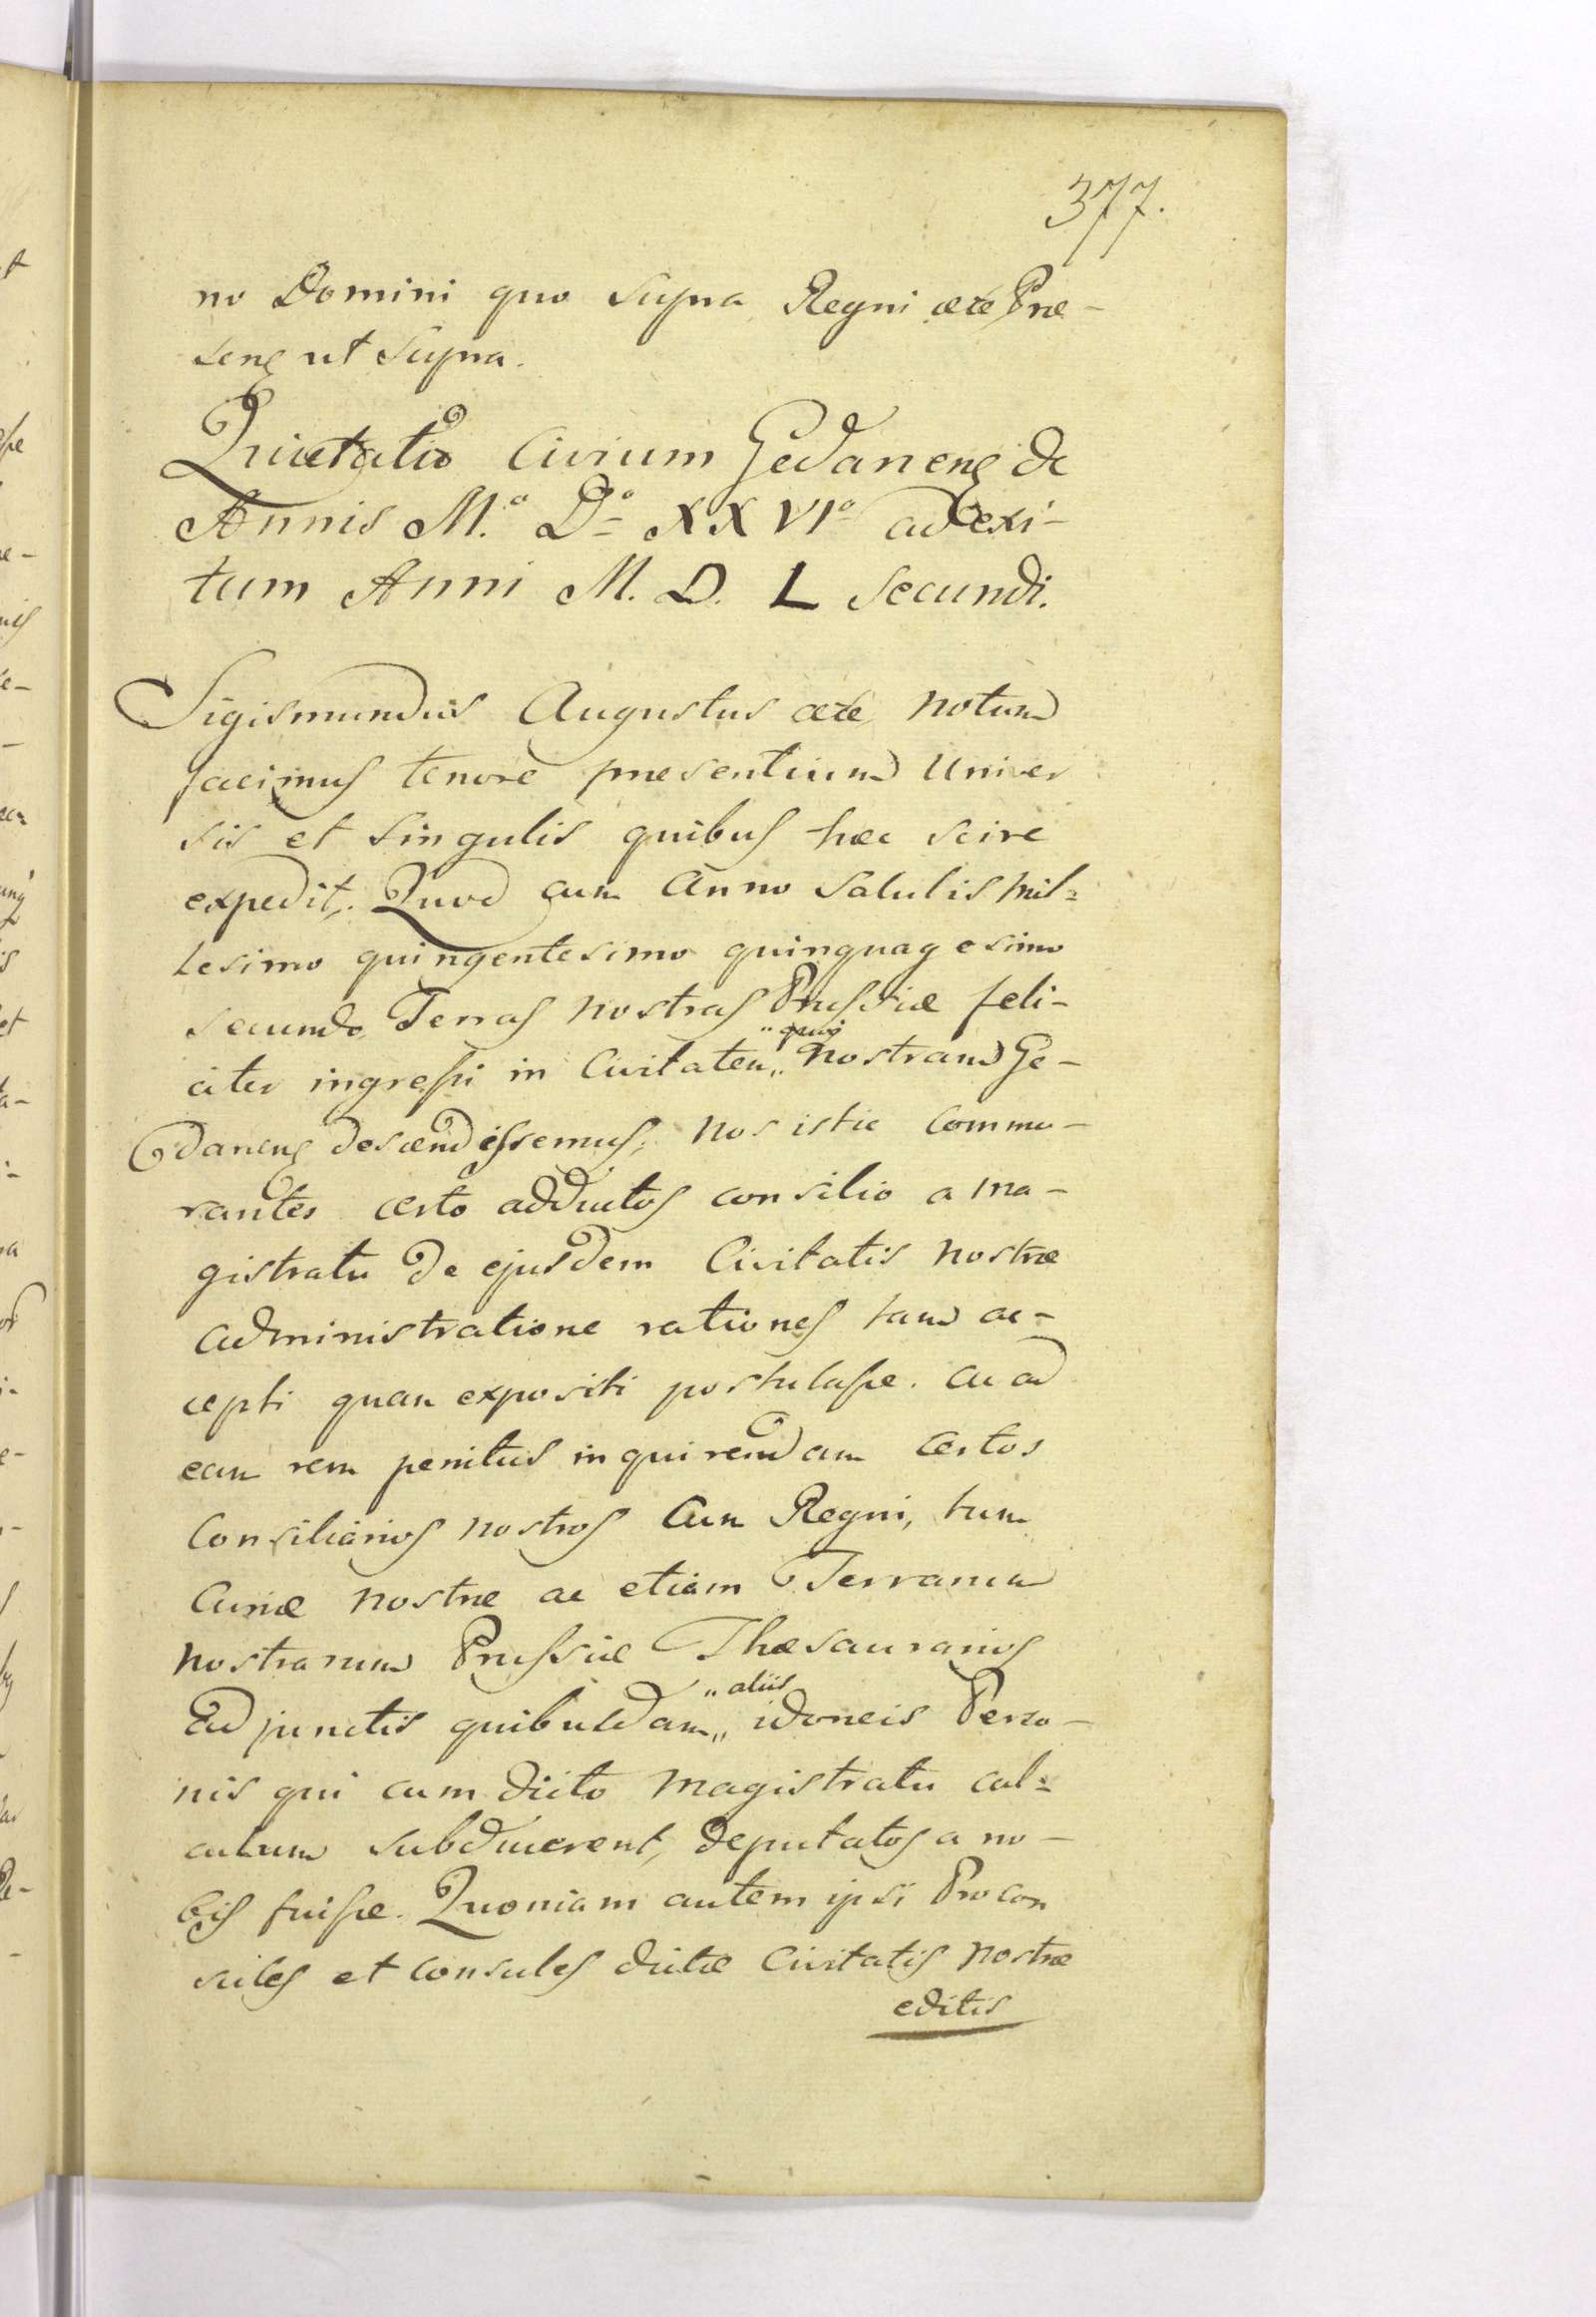 377.
no Domini quo supra Regni etc Præ-
sens ut supra.
Quietatio Civium Gedanens de
Annis M.º Dº XXVIº ad exi-
tum Anni M. D. L secundi.
Sigismundus Augustus etc notum
facimus tenore presentium Univer
sis et singulis quibus hæc scire
expedit. Quod cum Anno Salutis mil=
lesimo quingentesimo quinquagesimo
secundo Terras nostras Prussiæ feli-
„quoq
citer ingressi in Civitatem„ nostram Ge-
danens descendissemus, nos istic commo-
rantes certo adductos consilio a ma-
gistratu de ejusdem Civitatis nostræ
administratione rationes tam ac-
cepti quam expositi postulasse. ac ad
eam rem penitus inquirendam certos
Consiliarios nostros cum Regni, tum
Curiæ nostræ ac etiam Terrarum
nostrarum Prussiæ Thesaurarios
„aliis
Adjunctis quibusdam„ idoneis Perso-
nis qui cum dicto magistratu cal=
culum subducerent, deputatos a no-
bis fuisse. Quoniam autem ipsi Procon
sules et Consules dictæ Civitatis nostræ
editis